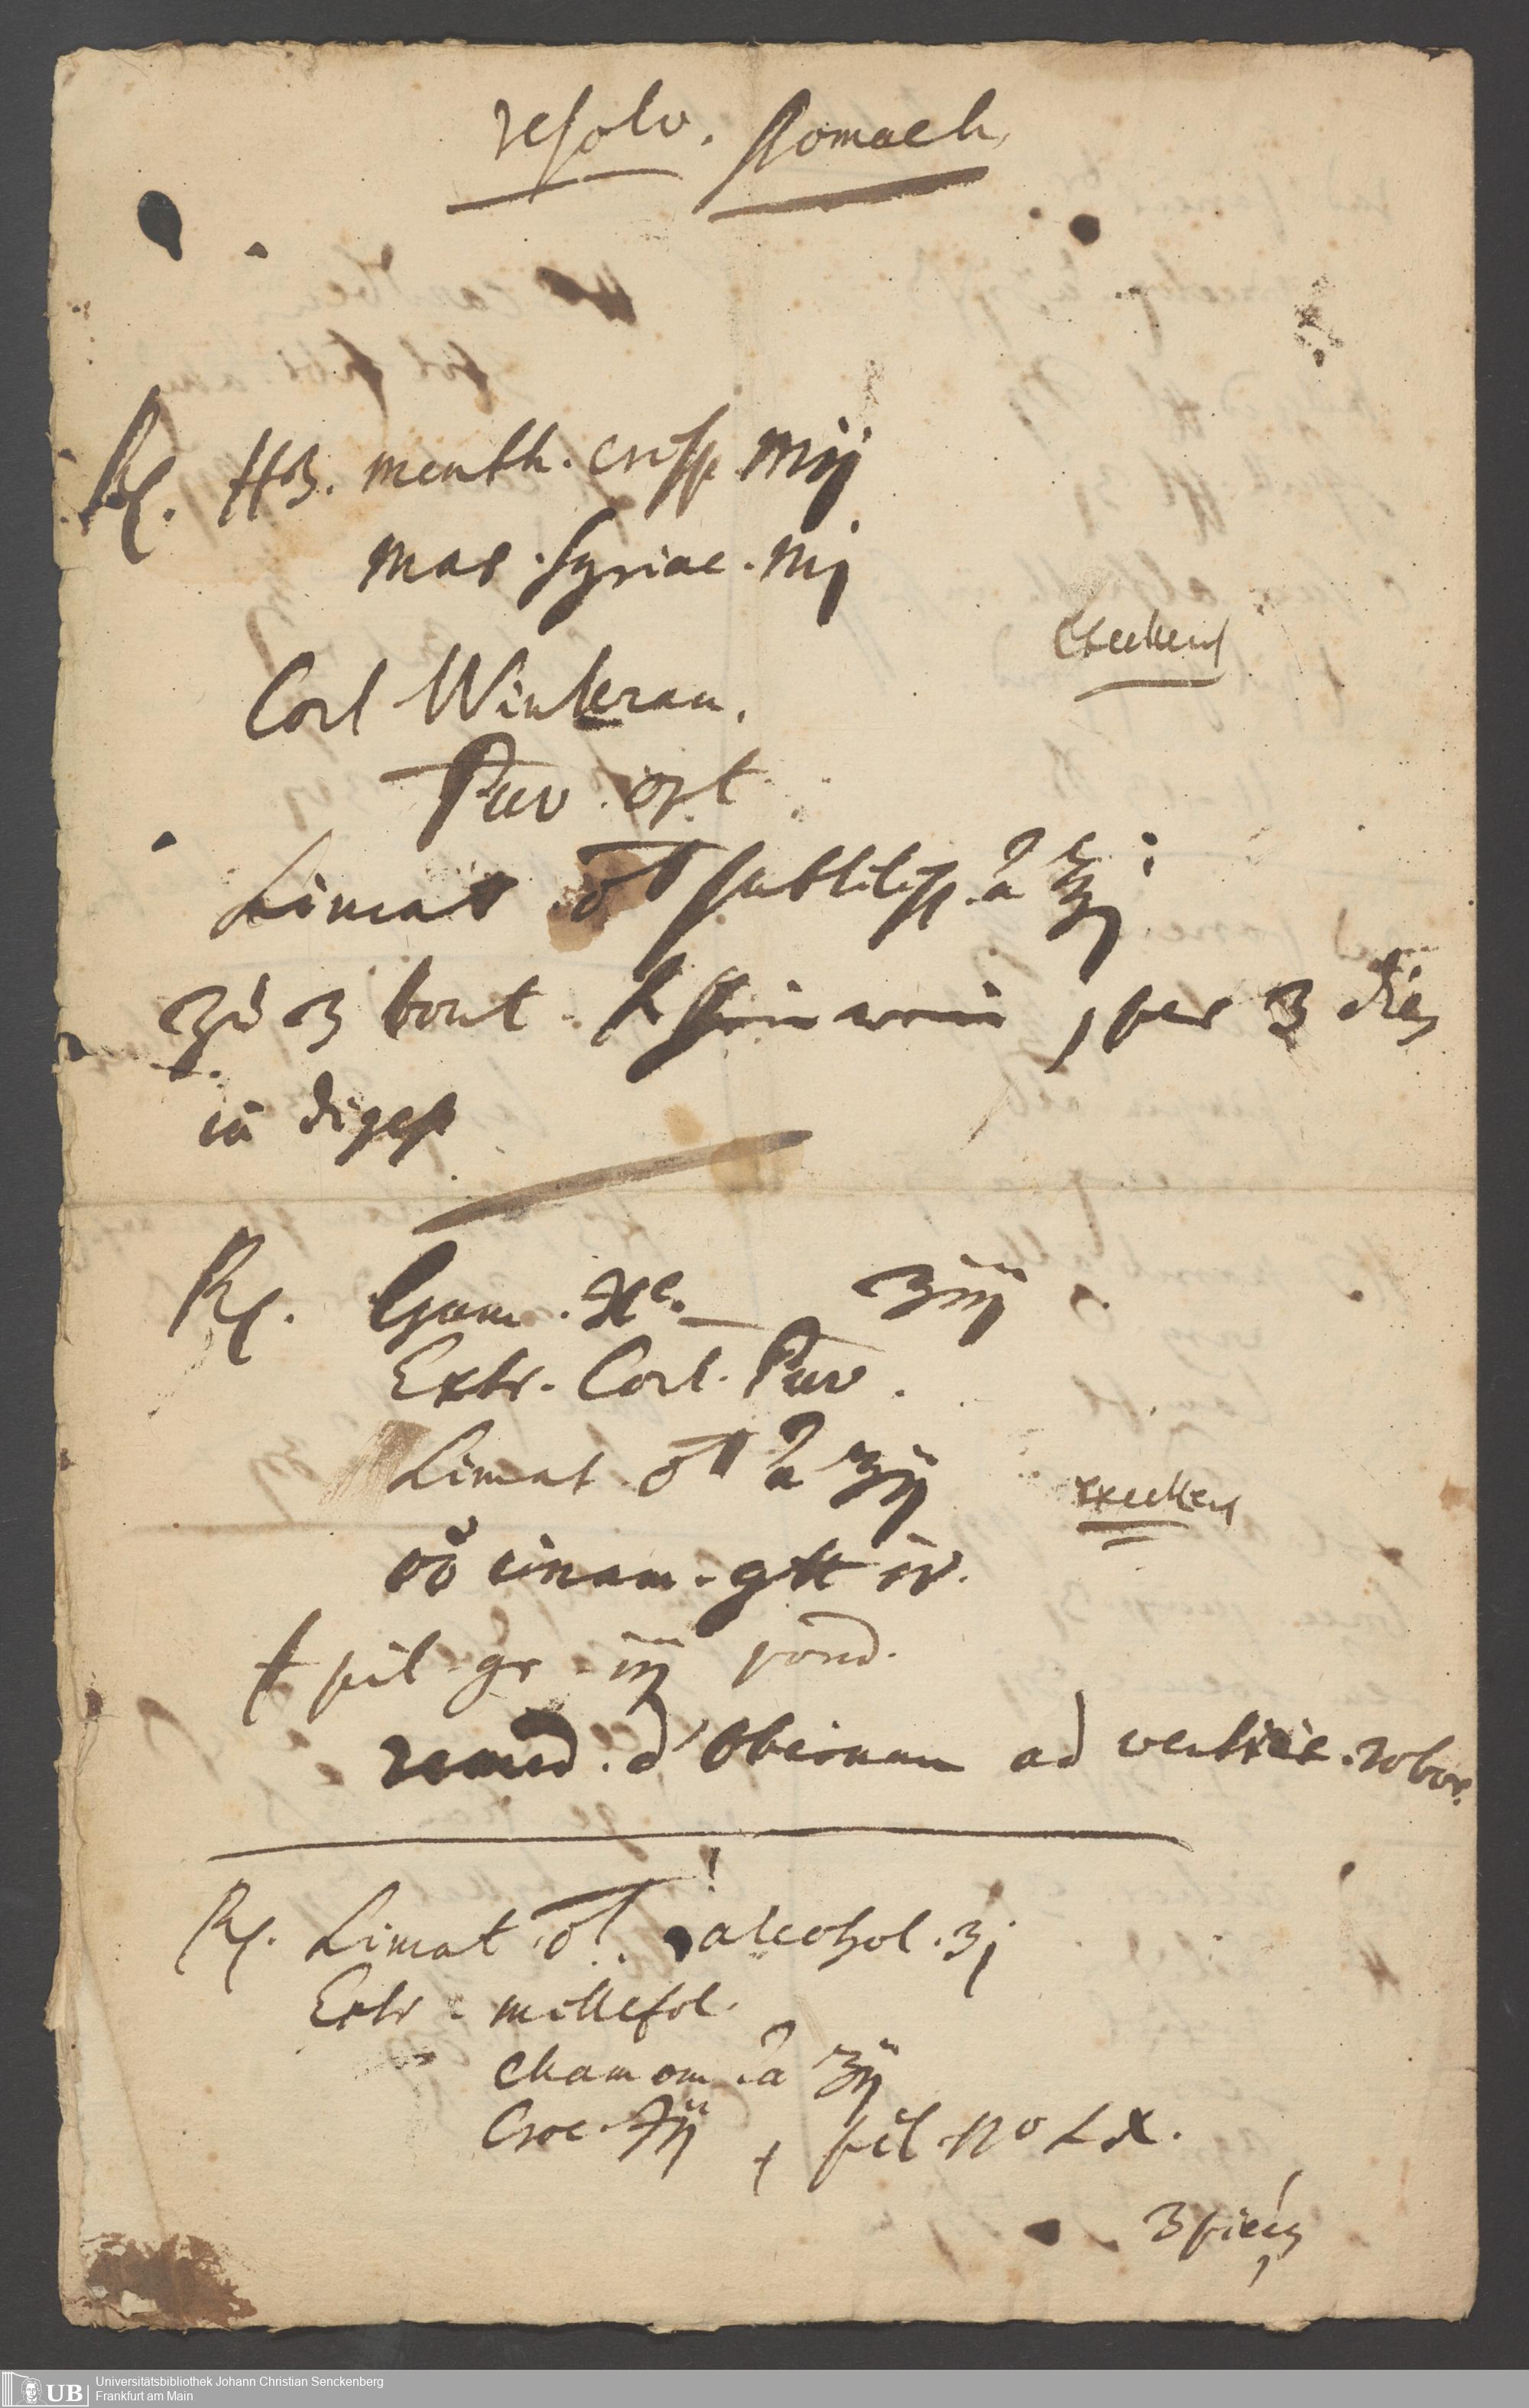 resolv. stomach.
℞. HB. menth. crisp Mij
mar. syriac. Mj
Cort Winteran.
Peruv. 
Limat ♂ subtiliss. ā ℥j
zu 3 bout. Rheinwein, per 3 dies
in digest
℞. Gum. ʒiij
Extr. Cort. Peruv.
Limat ♂ ā ʒij
cinam. gtt iv.
pil gr. iij pond.
remed. d' Obeinam ad ventric. robor.
℞. Limat ♂. alcohol. ʒj
Extr. millefol.
chamom. ā ʒij
Croc. ℈ij f pil. No LX.
Universitätsbibliothek Johann Christian Senckenberg
Frankfurt am Main
UB